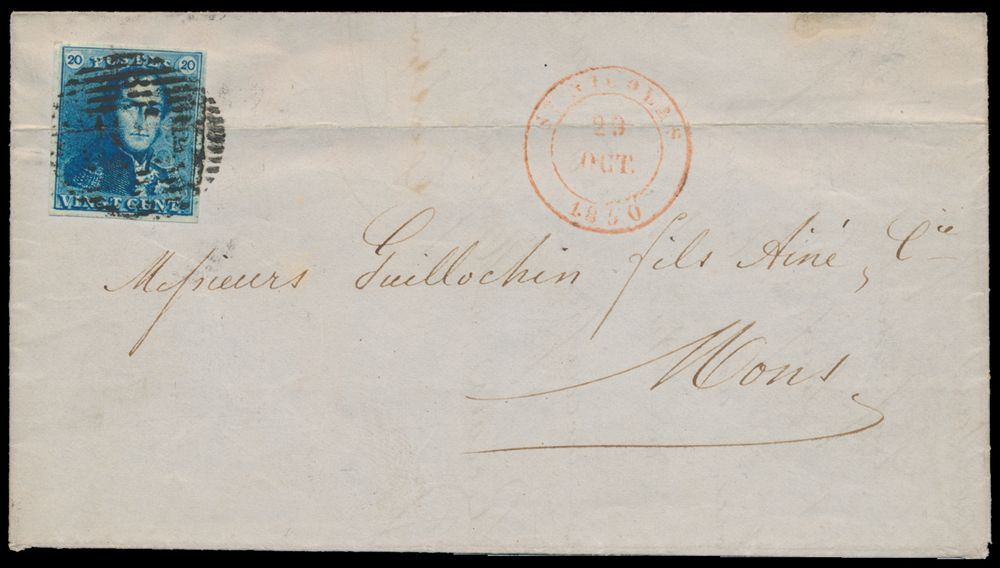 20 POSTES 20
VINGT CENTS
ST NICOLAS
29
OCT.
1850
Messieurs Guillochin fils Ainé, Cie
Mons